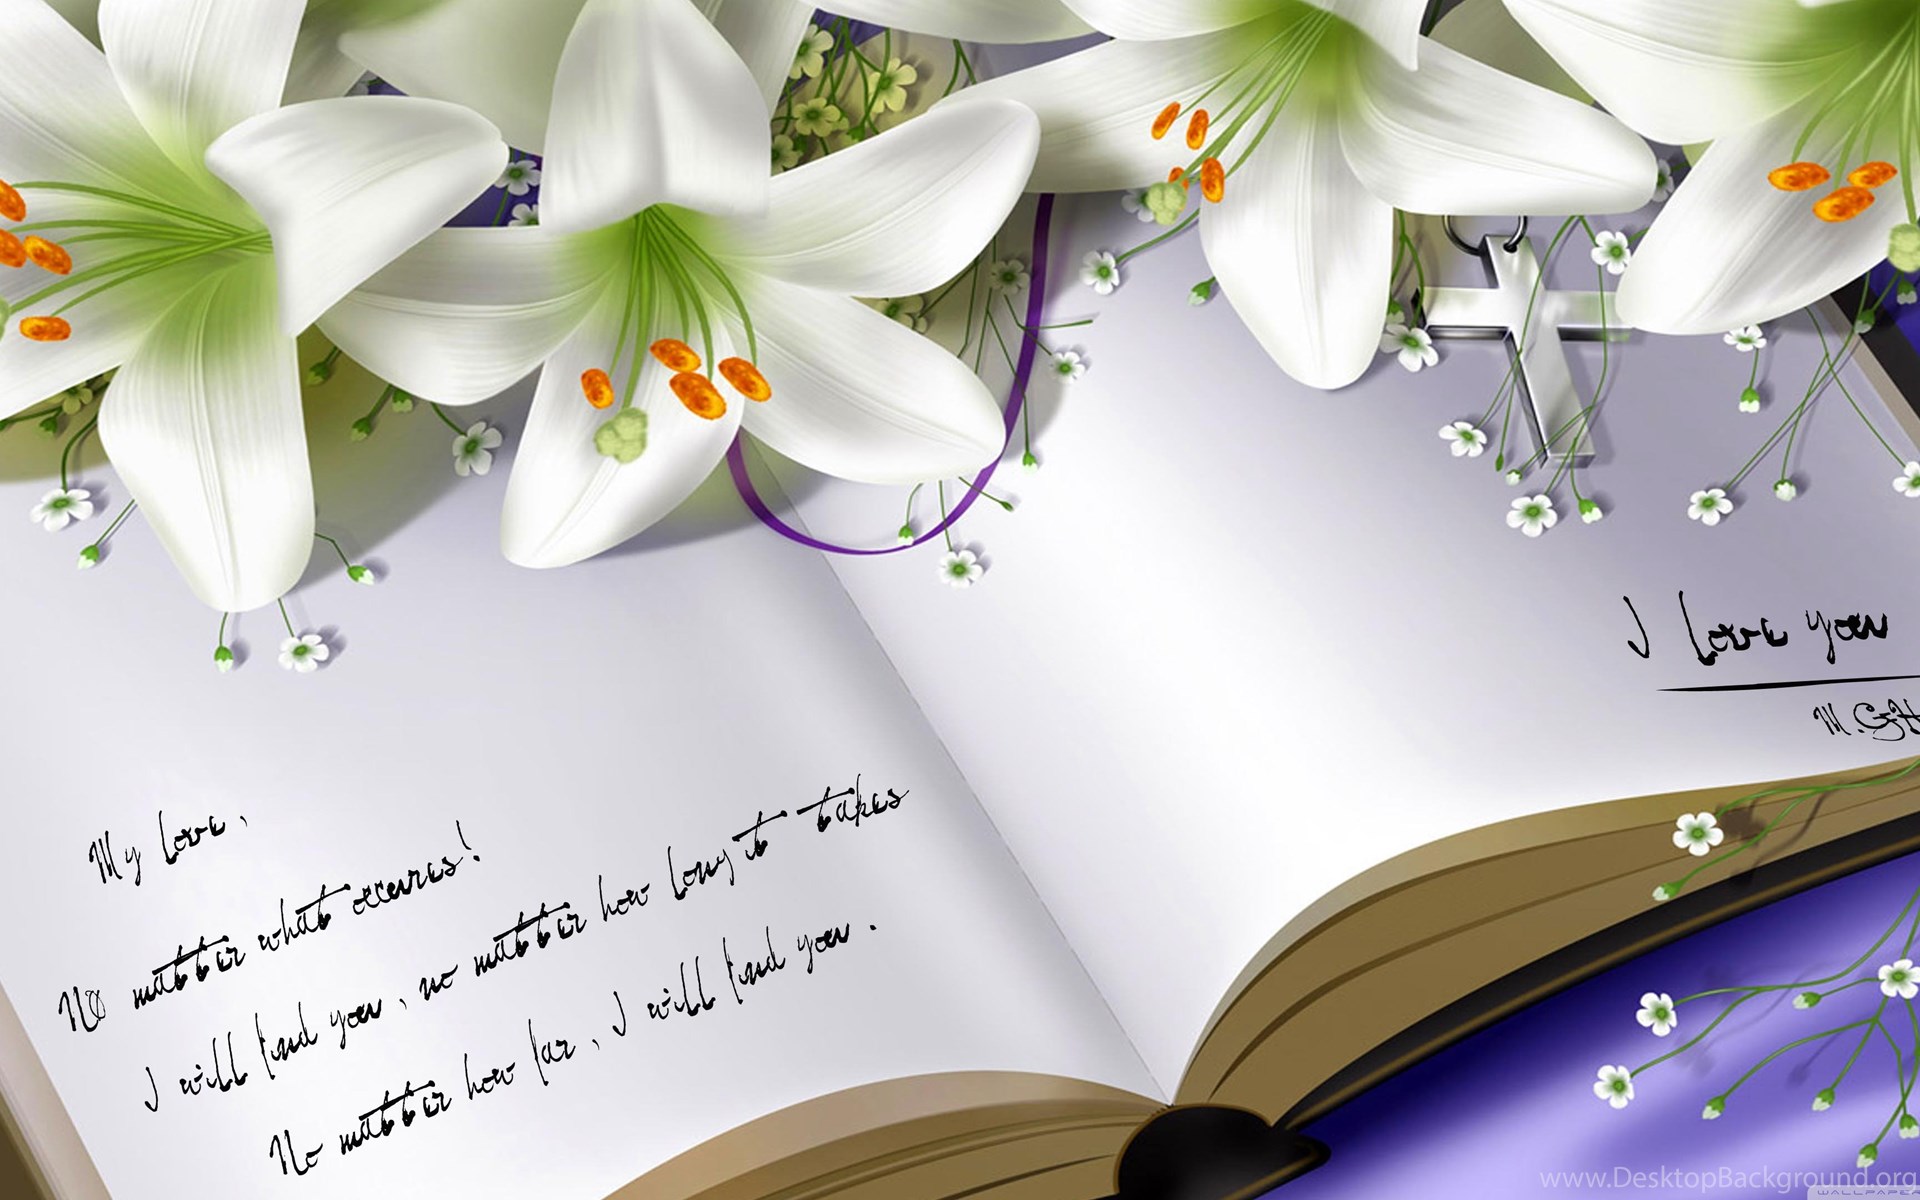 My love,
No matter what occures!
I will find you, no matter how long it takes
No matter how far, I will find you.
I love you
M.G.H
www.DesktopBackground.org
WALLPAPER